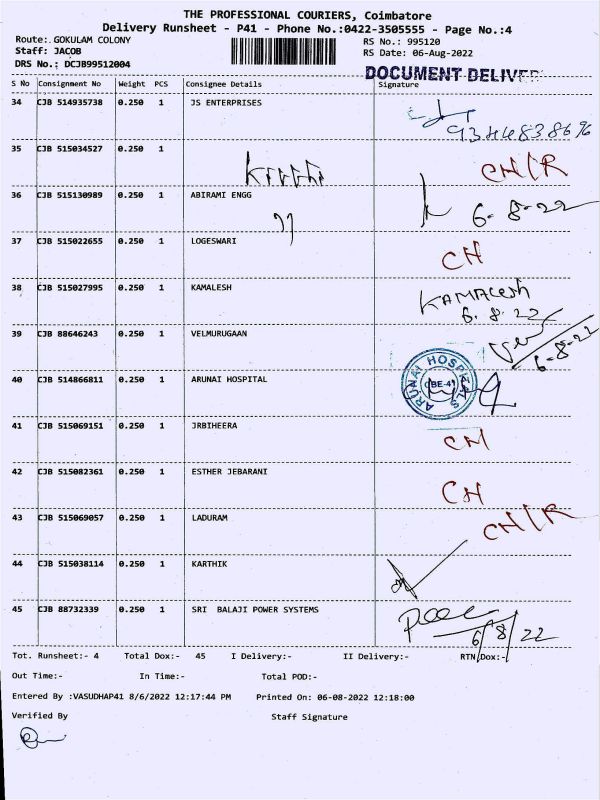 THE PROFESSIONAL COURIERS, Coimbatore
Delivery Runsheet - P41 - Phone No.:0422-3505555 - Page No.:4
Route:. GOKULAM COLONY RS No.: 995120
Staff: JACOB RS Date: 06-Aug-2022
DRS No.: DCJB99512004
DOCUMENT DELIVER
S No Consignment No Weight PCS Consignee Details Signature
34 CJB 514935738 0.250 1 JS ENTERPRISES
35 CJB 515034527 0.250 1 CH/R
36 CJB 515130989 0.250 1 ABIRAMI ENGG 6-8-22
37 CJB 515022655 0.250 1 LOGESWARI CH
38 CJB 515027995 0.250 1 KAMALESH KAMALESH
6.8.22
39 CJB 88646243 0.250 1 VELMURUGAAN 6-8-22
40 CJB 514866811 0.250 1 ARUNAI HOSPITAL ARUNAI HOSPITALS CBE-41
41 CJB 515069151 0.250 1 JRBIHEERA CH
42 CJB 515082361 0.250 1 ESTHER JEBARANI CH
43 CJB 515069057 0.250 1 LADURAM CH/R
44 CJB 515038114 0.250 1 KARTHIK
45 CJB 88732339 0.250 1 SRI BALAJI POWER SYSTEMS 6/8/22
Tot. Runsheet:- 4 Total Dox:- 45 I Delivery:- II Delivery:- RTN Dox:-
Out Time:- In Time:- Total POD:-
Entered By :VASUDHAP41 8/6/2022 12:17:44 PM Printed On: 06-08-2022 12:18:00
Verified By Staff Signature